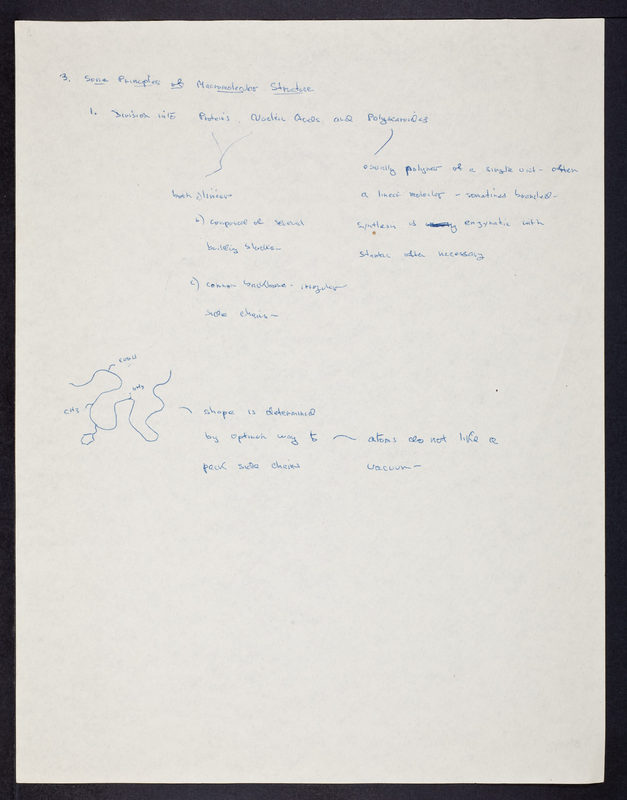 3. Some Principles of Macromolecular Structure
1. Division into Proteins, Nucleic Acids and Polysaccarides
usually polymer of a single unit - often
a linear molecule - sometimes branched -
synthesis is enzymatic with
starter often necessary
both a) linear
b) composed of several
building blocks -
c) common backbone - irregular
side chains -
CH3
shape is determined
by optimum way to
pack side chains
atoms do not like a
vacuum -